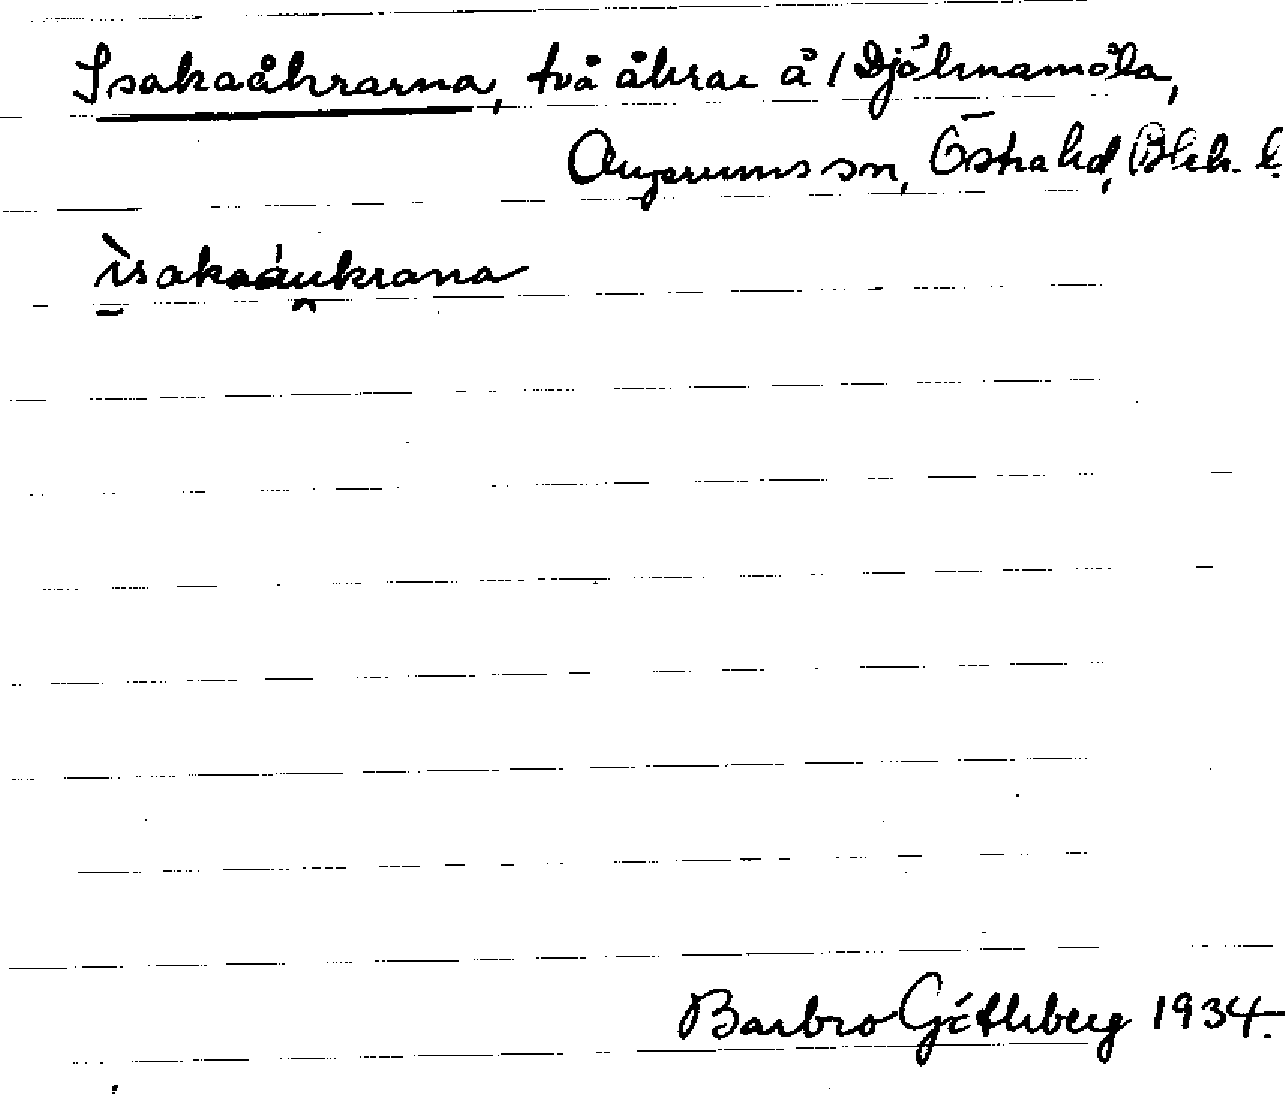 Isakaåkrarna, två åkrar å 1 Djöknamåla,
Augerums sn, Östra hd, Blek. l.
ìsakaáukrana
Barbro Göthberg 1934.